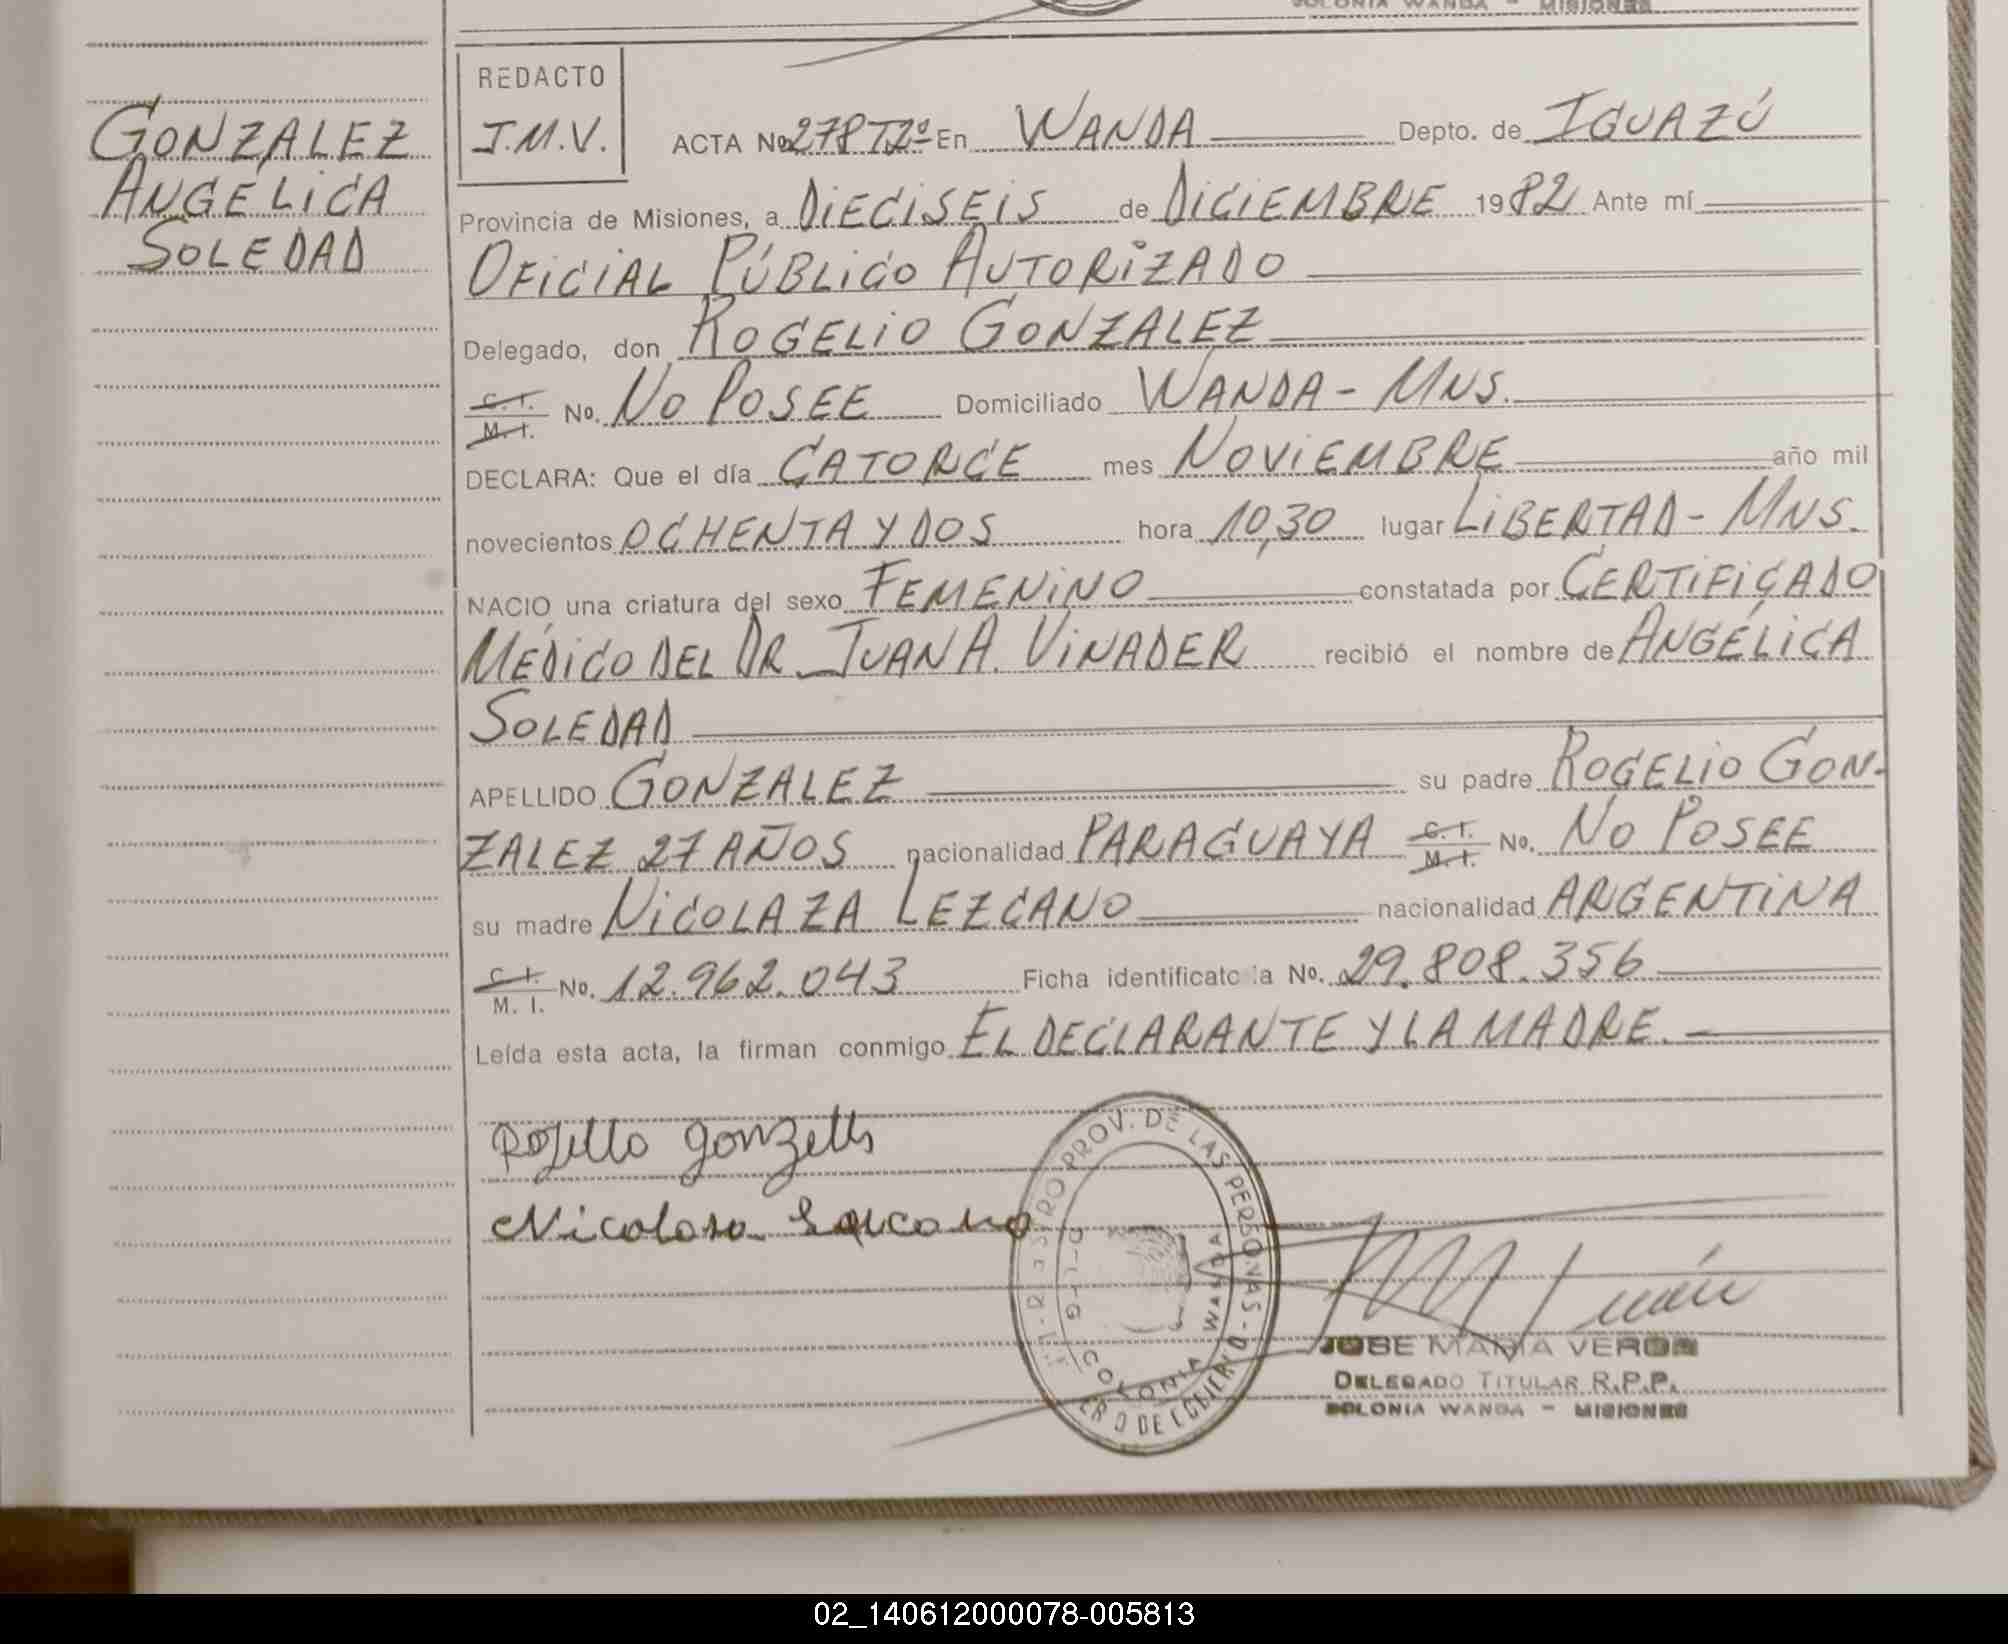 COLONIA WANDA - MISIONES
GONZALEZ
ANGÉLICA
SOLEDAD
REDACTO
J.M.V.
ACTA No 278 T2º En WANDA Depto. de IGUAZÚ
Provincia de Misiones, a DIECISEIS de DICIEMBRE 1982 Ante mí
OFICIAL PÚBLICO AUTORIZADO
Delegado, don ROGELIO GONZALEZ
C. I.
M. I. No. NO POSEE Domiciliado WANDA - MNS.
DECLARA: Que el día CATORCE mes NOVIEMBRE año mil
novecientos OCHENTA Y DOS hora 10,30 lugar LIBERTAD - MNS.
NACIO una criatura del sexo FEMENINO constatada por CERTIFICADO
MÉDICO DEL DR JUAN A. VINADER recibió el nombre de ANGÉLICA
SOLEDAD
APELLIDO GONZALEZ su padre ROGELIO GON-
ZALEZ 27 AÑOS nacionalidad PARAGUAYA C. I. M. I. No. NO POSEE
su madre NICOLAZA LEZCANO nacionalidad ARGENTINA
C. I.
M. I. No. 12.962.043 Ficha identificatoria No. 29.808.356
Leída esta acta, la firman conmigo EL DECLARANTE Y LA MADRE.
Nicolasa
PROV. DE LAS PERSONAS
COLONIA WANDA
JOSE MARIA VERON
DELEGADO TITULAR R.P.P.
COLONIA WANDA - MISIONES
02_140612000078-005813